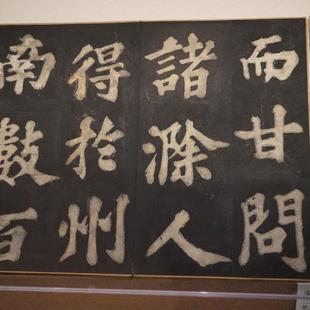 而甘問
諸滁人
得於州
南數百